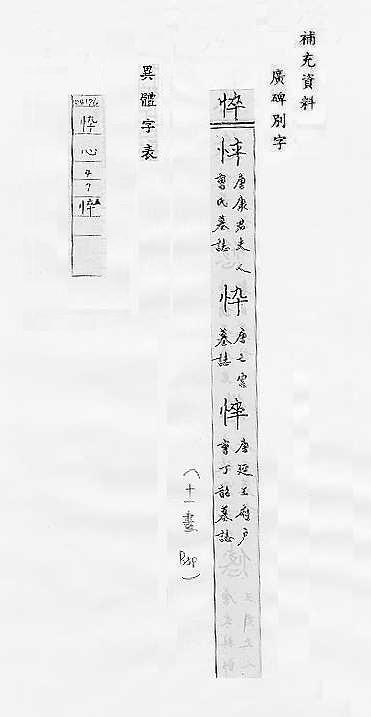 補充資料
廣碑別字
悴
唐康君夫人
曹氏墓誌
忰
唐亡宮
墓誌
唐延王府户
曹丁韶墓誌
(十一畫 P.310)
異體字表
心
4
7
悴